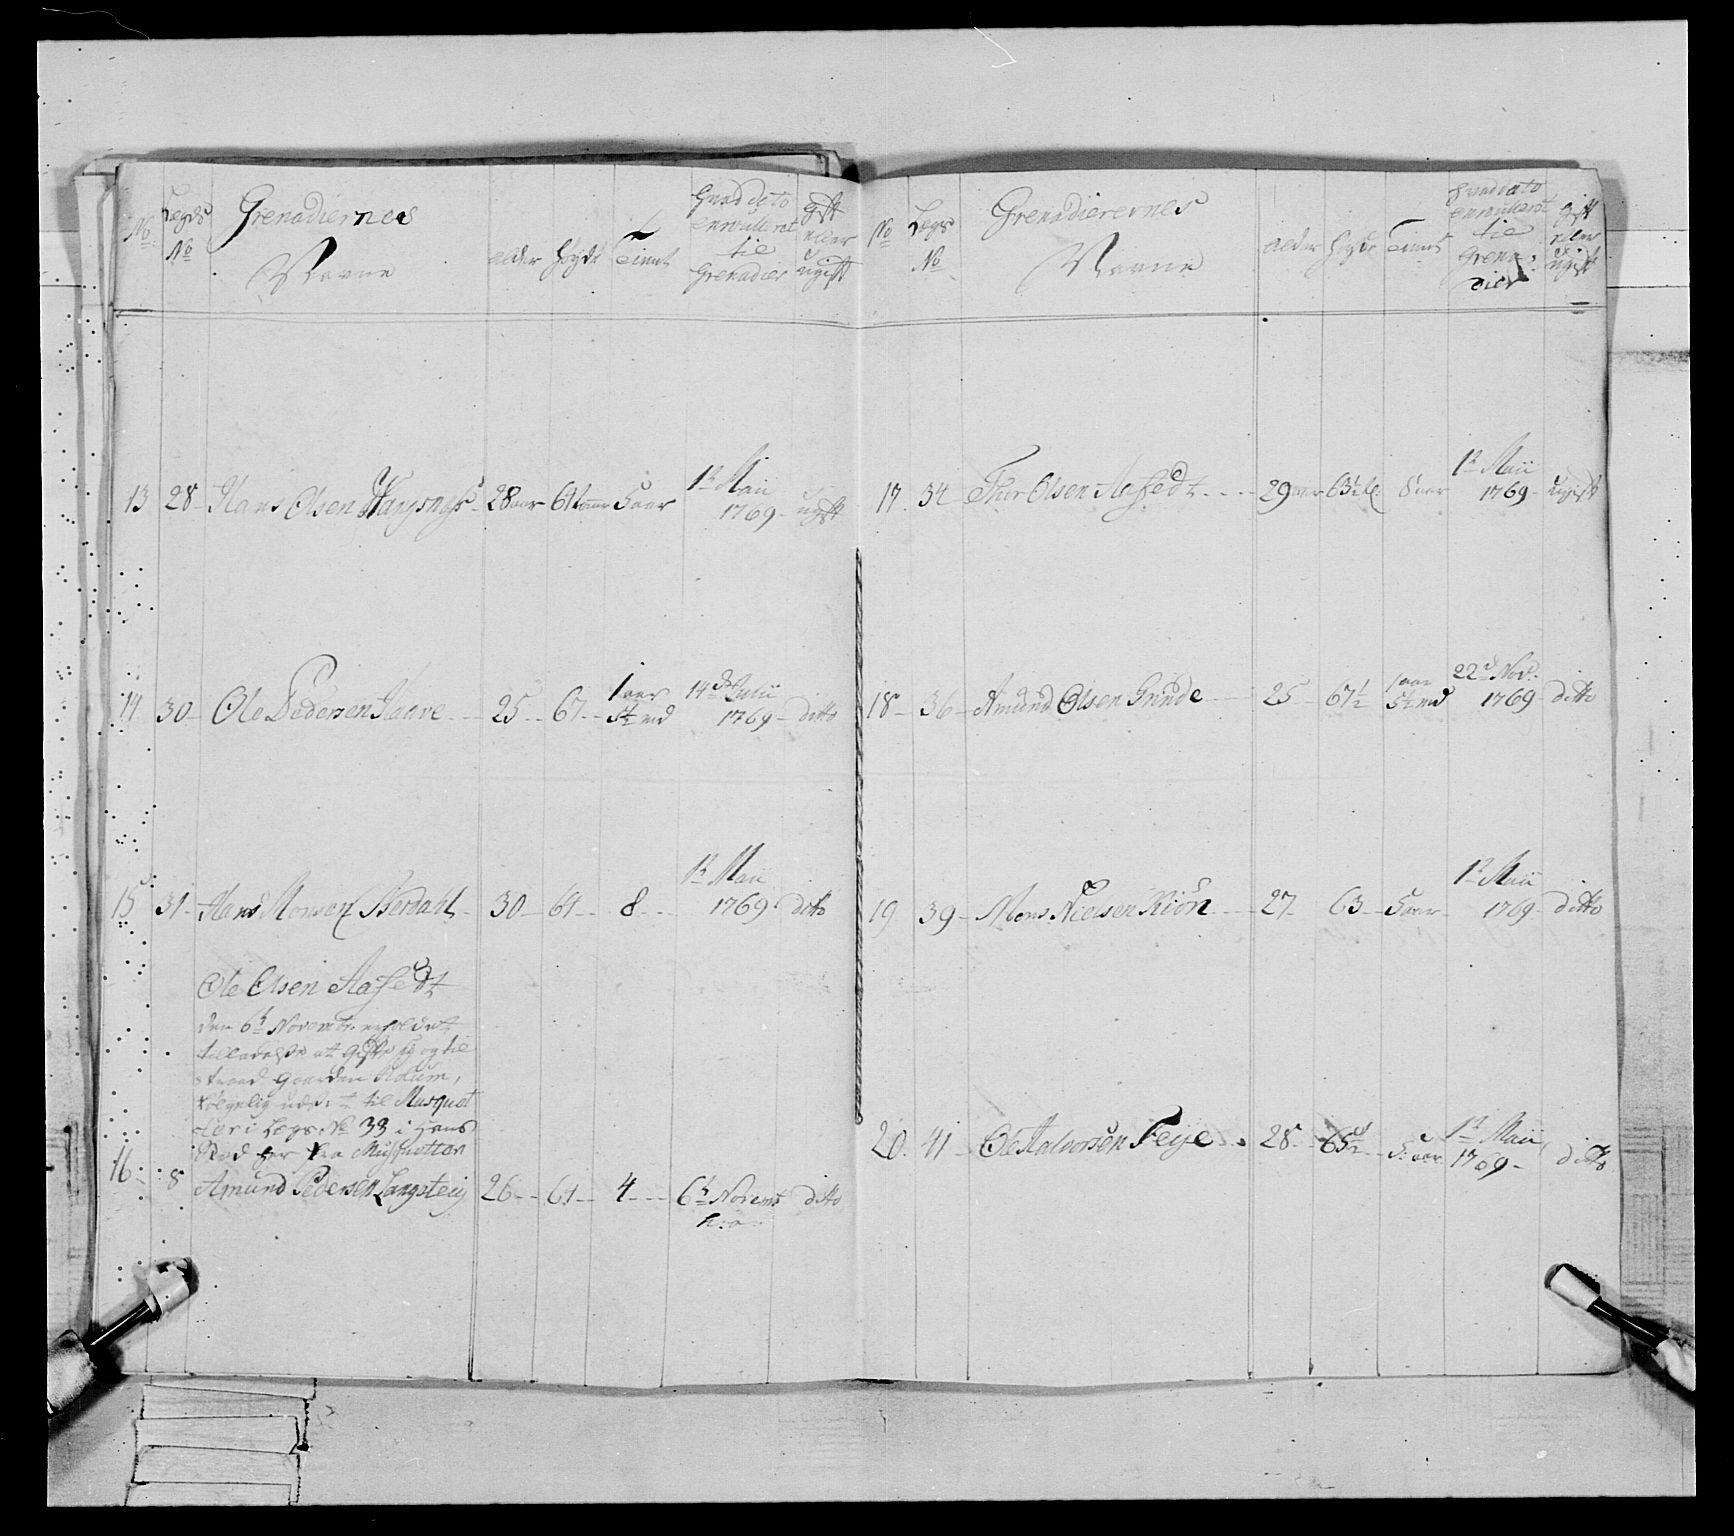 No
Legds No
Grenadiernes Navne
Alder
Høyde
Tient
Hvad dato enroulleret til Grenadier
Gift eller ugift
13 28 Hans Olsen 28 aar 5 aar 1te Maii 1769 ugift
14 30 Ole Pedersen Haave 25 67 1 aar 5½ md 14de Julii 1769 ditto
15 31 Hans Monsen Nerdahl 30 64 8 1te Maii 1769 ditto
Ole Olsen Aafedt
den 6te Novembr. erholdet
tilladelse at gifte sig og til
traad gaarden
følgelig til Musquet
-ter i Legs No 33 i hans
Sted her fra Musquetter
16 8 Amund Pedersen Langsteig 26 61 4 6te Novembr. ditto
No
Legs No
Grenadierernes Navne
Alder
Høyde
Tient
Hvad dato enroulleret til Grenadier
Gift eller ugift
17 34 Thor Olsen Aafedt 29 aar 63½ 8 aar 1te Maii 1769 ugift
18 36 Amund Olsen Grinde 25 67½ 1 aar 5½ md 22de Nov. 1769 ditto
19 39 Mons Nielsen Kiøn 27 63 5 aar 1te Maii 1769 ditto
20 41 Ole Halvorsen Feije 28 65½ 5 aar 1te Maii 1769 ditto